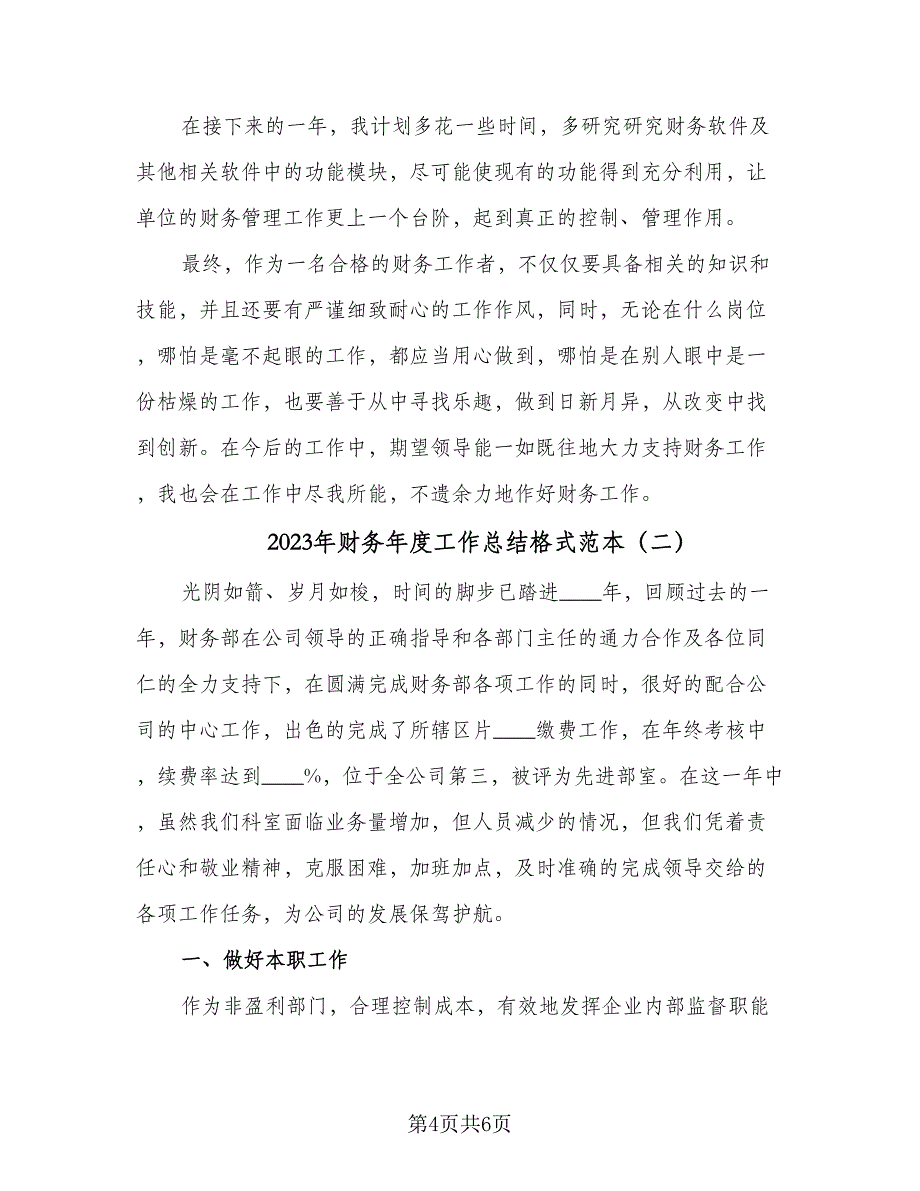 在接下来的一年，我计划多花一些时间，多研究研究财务软件及
其他相关软件中的功能模块，尽可能使现有的功能得到充分利用，让
单位的财务管理工作更上一个台阶，起到真正的控制、管理作用。
最终，作为一名合格的财务工作者，不仅仅要具备相关的知识和
技能，并且还要有严谨细致耐心的工作作风，同时，无论在什么岗位
，哪怕是毫不起眼的工作，都应当用心做到，哪怕是在别人眼中是一
份枯燥的工作，也要善于从中寻找乐趣，做到日新月异，从改变中找
到创新。在今后的工作中，期望领导能一如既往地大力支持财务工作
，我也会在工作中尽我所能，不遗余力地作好财务工作。
2023年财务年度工作总结格式范本（二）
光阴如箭、岁月如梭，时间的脚步已踏进____年，回顾过去的一
年，财务部在公司领导的正确指导和各部门主任的通力合作及各位同
仁的全力支持下，在圆满完成财务部各项工作的同时，很好的配合公
司的中心工作，出色的完成了所辖区片____缴费工作，在年终考核中
，续费率达到____%，位于全公司第三，被评为先进部室。在这一年中
，虽然我们科室面临业务量增加，但人员减少的情况，但我们凭着责
任心和敬业精神，克服困难，加班加点，及时准确的完成领导交给的
各项工作任务，为公司的发展保驾护航。
一、做好本职工作
作为非盈利部门，合理控制成本，有效地发挥企业内部监督职能
第4页共6页